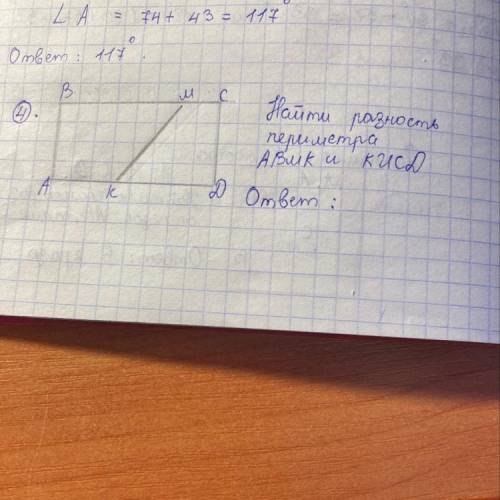 ∠A = 74 + 43 = 117°
Ответ: 117°.
④.
B M C
A K D
Найти разность
периметра
ABMK и KMCD
Ответ: